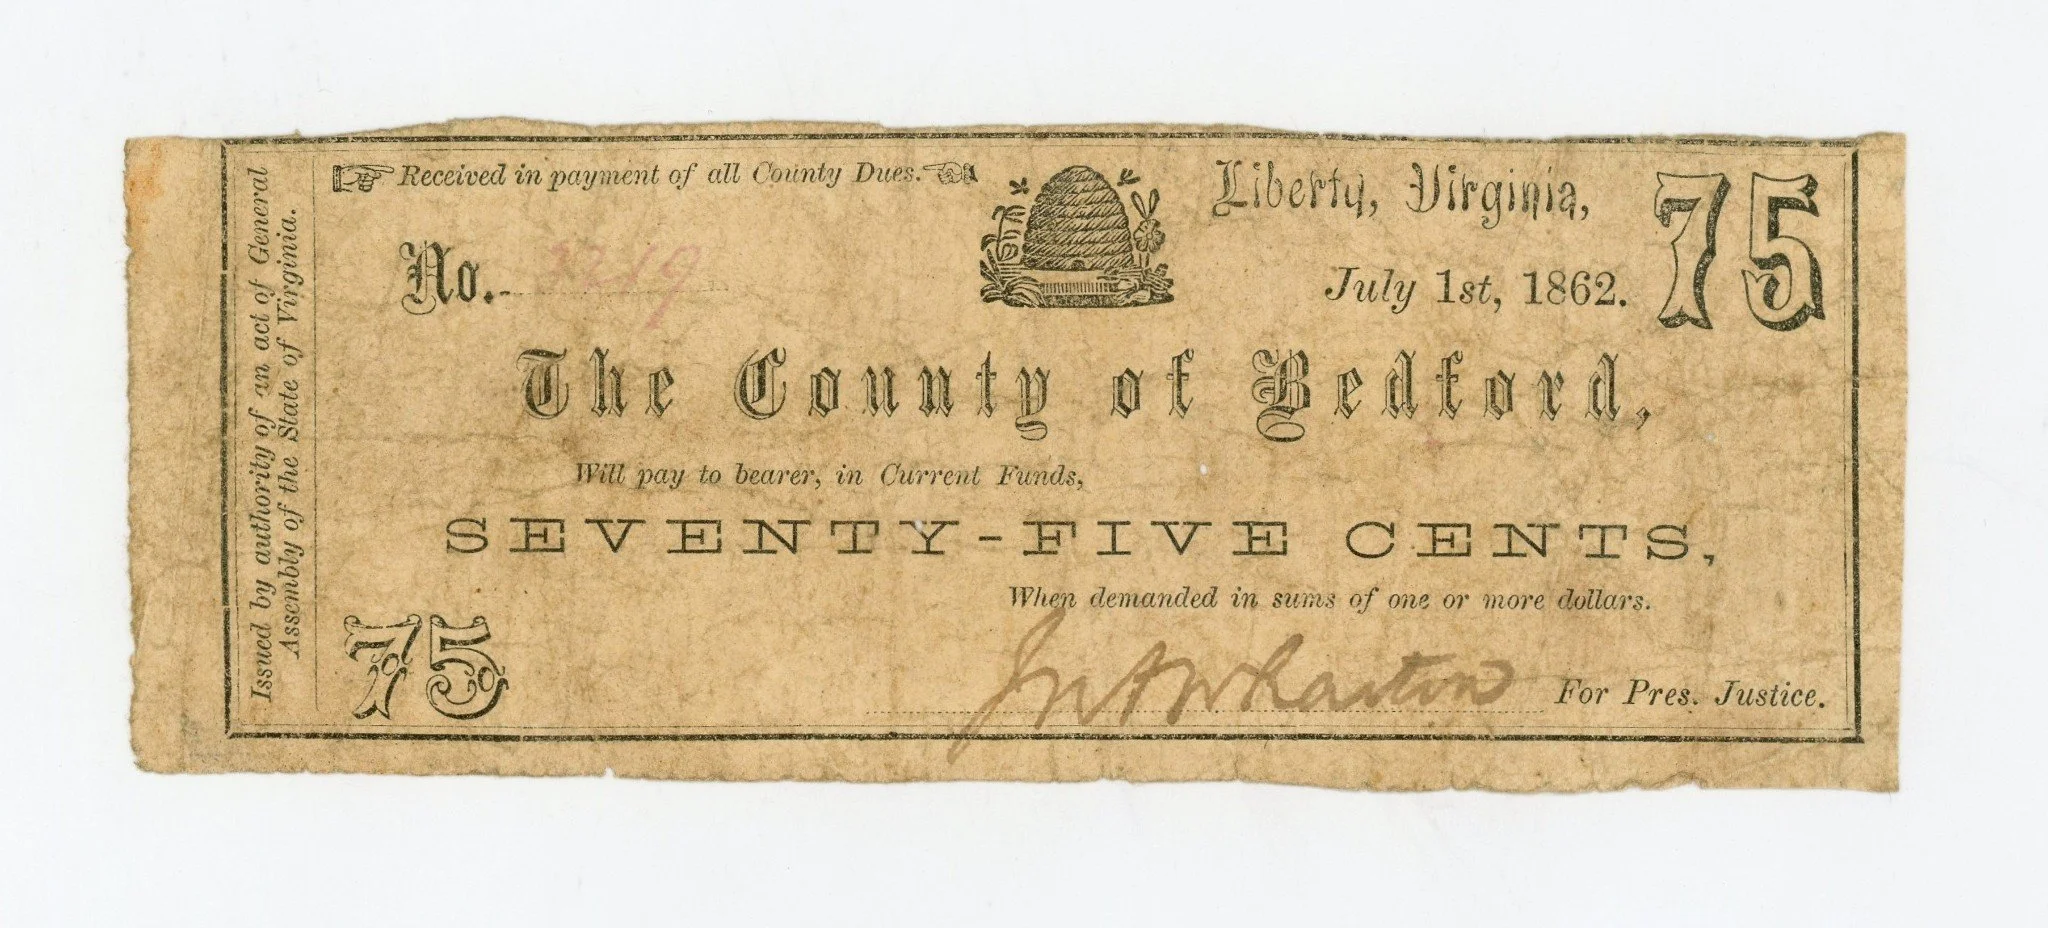 Issued by authority of an act of General
Assembly of the State of Virginia.
Received in payment of all County Dues.
Liberty, Virginia,
75
No.
July 1st, 1862.
The County of Bedford,
Will pay to bearer, in Current Funds,
SEVENTY-FIVE CENTS,
When demanded in sums of one or more dollars.
75
Wharton
For Pres. Justice.